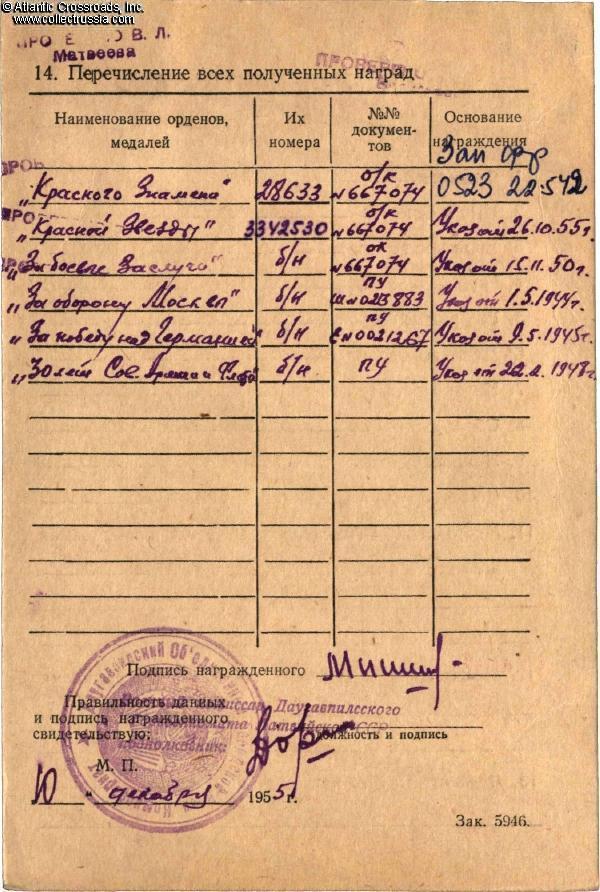 © Atlantic Crossroads, Inc.
www.collectrussia.com
В. Л.
Матвеева
14. Перечисление всех полученных наград
Наименование орденов, медалей
Их номера
№№ документов
Основание награждения
"Красного Знамени" 28633 о/к №667074 0523 22.542
"Красной Звезды" 3342530 о/к №667074 Указ от 26.10.55г.
"За боевые Заслуги" б/н ок №667074 Указ от 15.11.50г.
"За оборону Москвы" б/н ПУ №023883 Указ от 1.5.1944г.
"За победу над Германией" б/н ПУ №0021267 Указ от 9.5.1945г.
б/н ПУ Указ от 1948г.
Подпись награжденного
Правильность данных
и подпись награжденного
свидетельствую:
Даугавпилсского
подполковник:
Должность и подпись
М. П.
10 " декабря 1955г.
Зак. 5946.